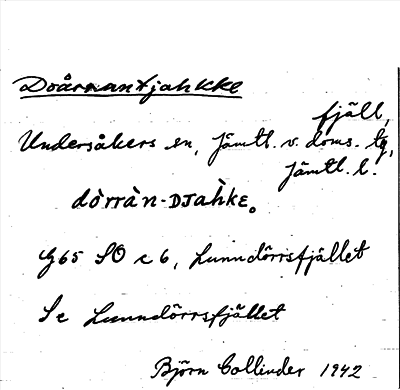 Doårranttjahkke
fjäll,
Undersåkers sn, Jämtl. v. doms. tg,
Jämtl. l.
dòrràn-DJaHKE.
G65 SO c 6, Lunndörrsfjället
Se Lunndörrsfjället
Björn Collinder 1942